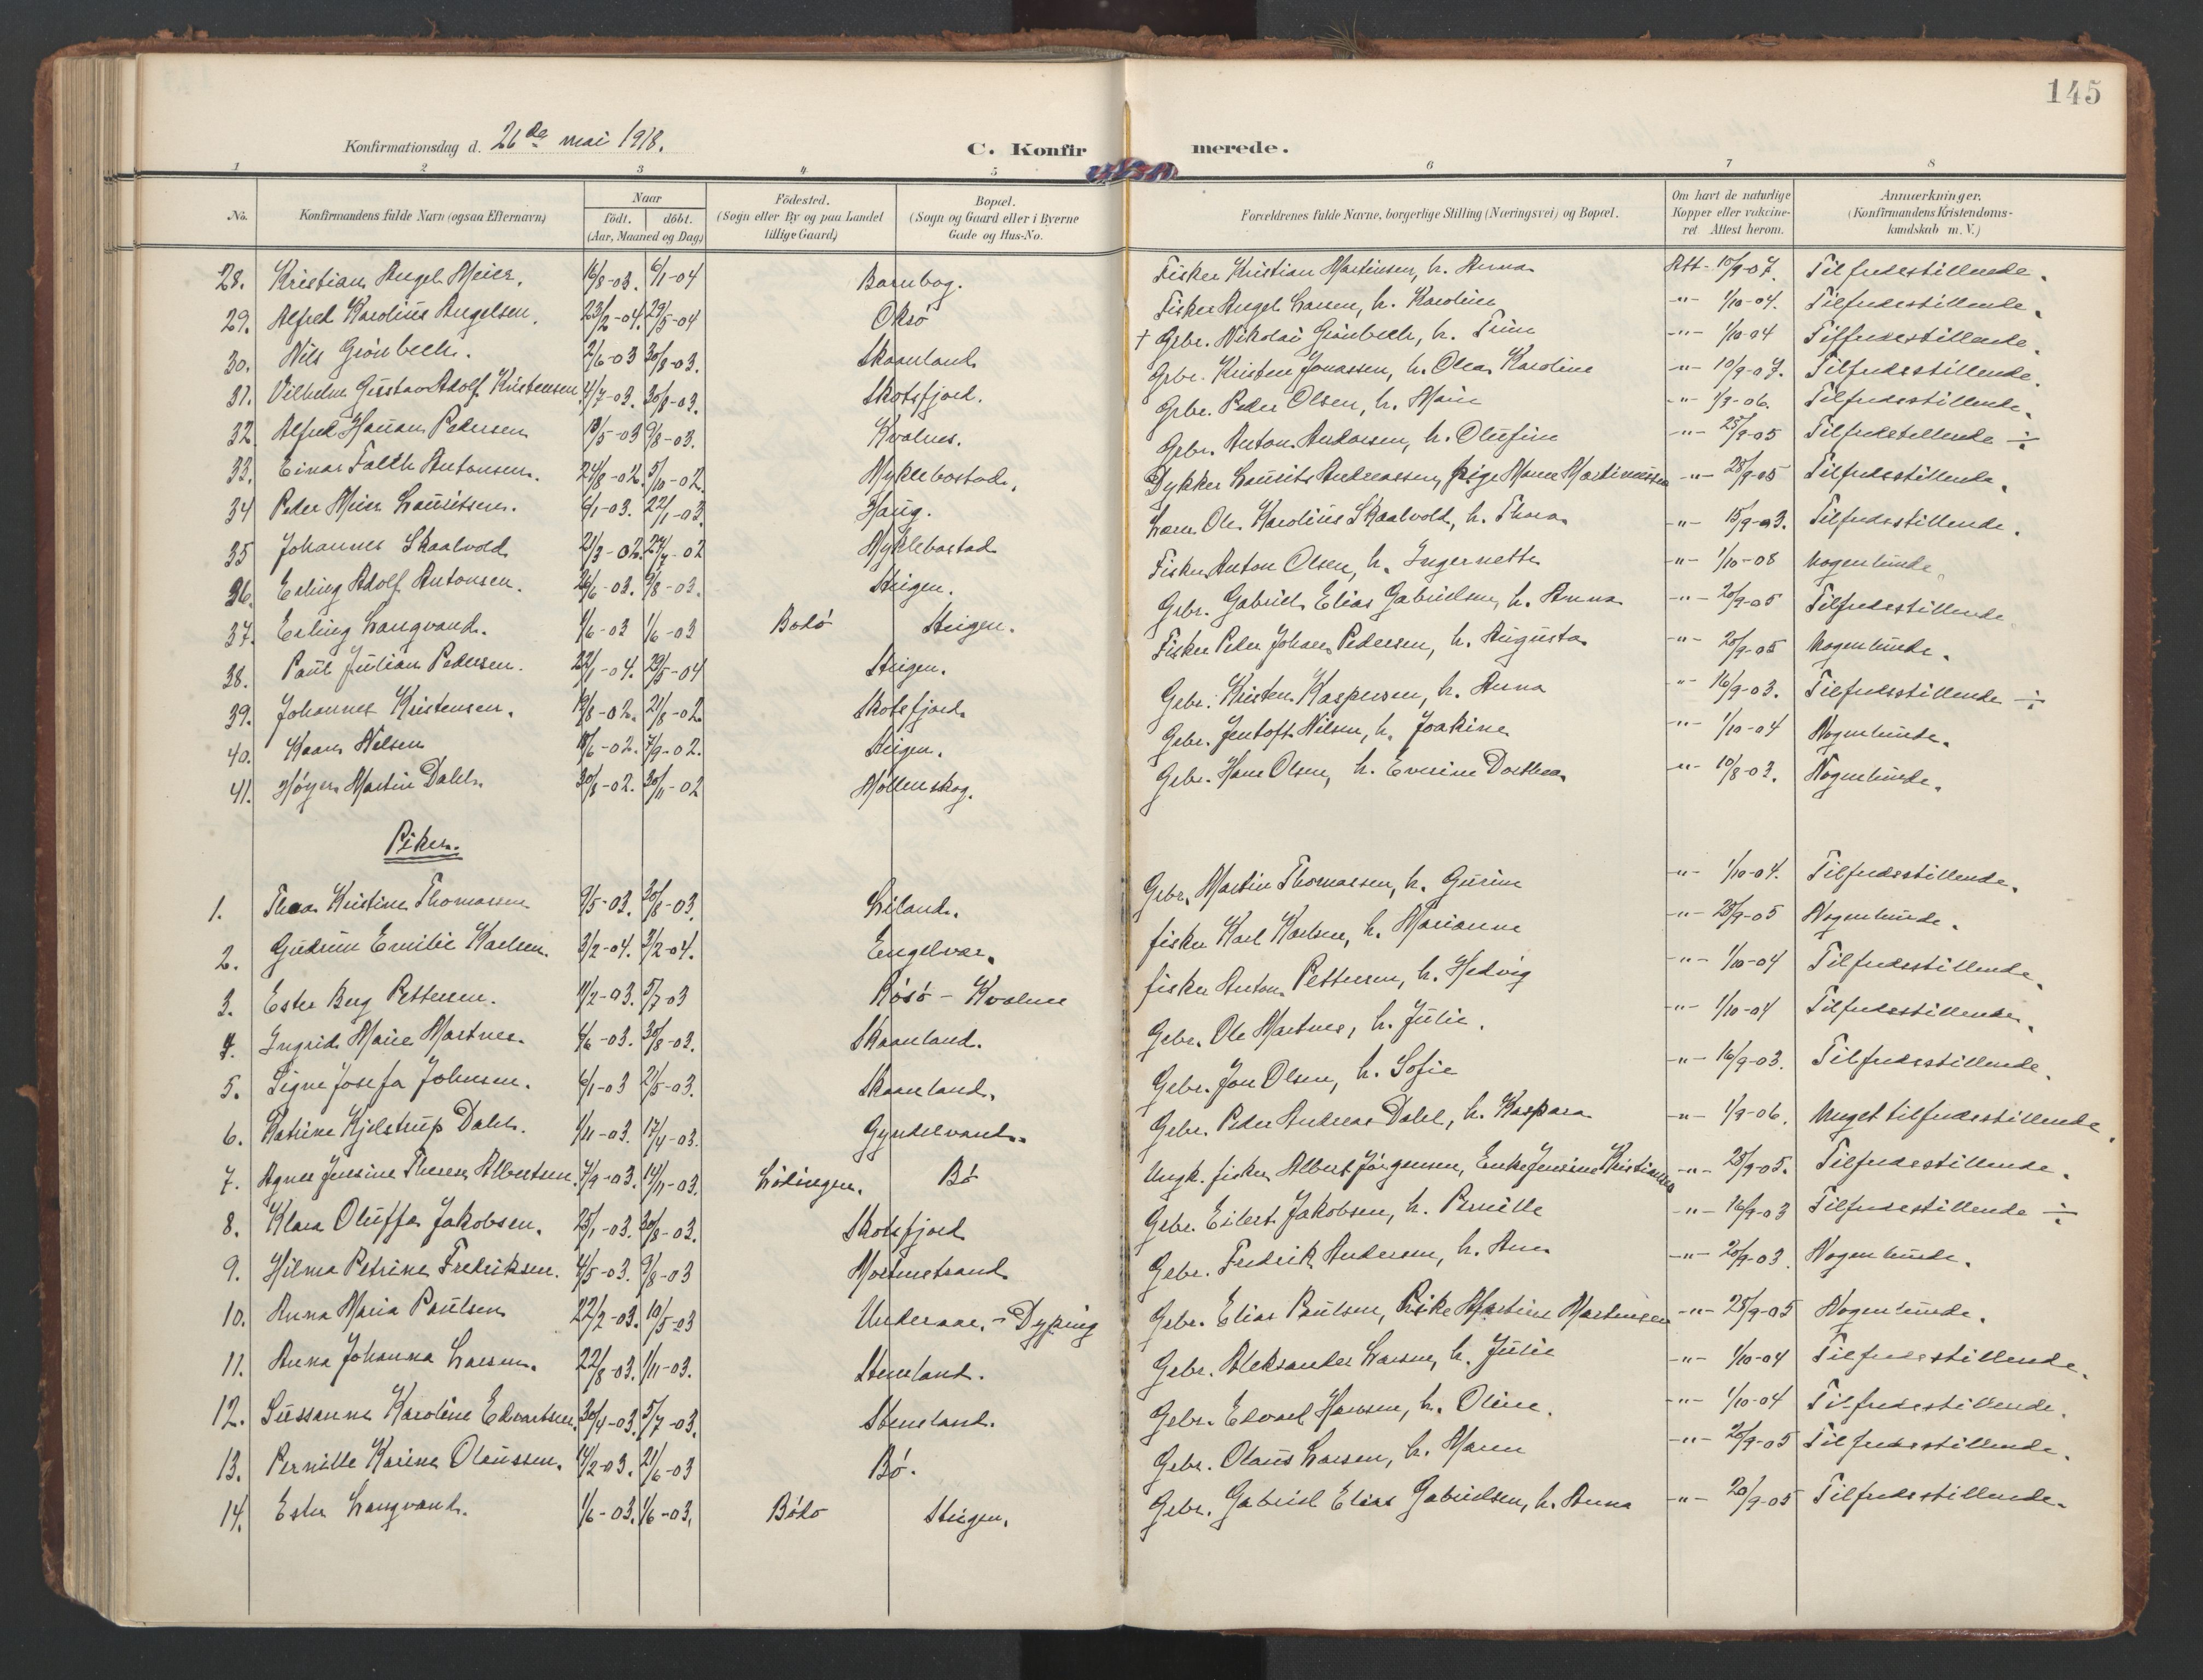 145
Konfirmationsdag d. 26de mai 1918.
C. Konfirmerede.
1 2 3 4 5 6 7 8
No. Konfirmandens fulde Navn (ogsaa Efternavn) Naar födt. döbt. (Aar, Maaned og Dag) Födested. (Sogn eller By og paa Landet tillige Gaard) Bopæl. (Sogn og Gaard eller i Byerne Gade og Hus-No. Forældrenes fulde Navne, borgerlige Stilling (Næringsvei) og Bopæl. Om havt de naturlige Kopper eller vakcineret Attest herom. Anmærkninger. (Konfirmandens Kristendomskundskab m. V.)
28. Kristian Angel Meier. 16/8-03. 6/1-04 Barnbog. Fisker Kristian Martinsen, h. Anna Att- 10/9-07. Tilfredsstillende.
29. Alfred Karolius Angelsen. 23/2-04. 29/5-04 Oksö Fisker Angel Larsen, h. Karoline -"- 1/10-04. Tilfredsstillende.
30. Nils Grönbech. 2/6-03 30/8-03. Skaanland † Gbr. Nikolai Grönbech, h. Trine -"- 1/10-04 Tilfredsstillende.
31. Vilhelm Gustav Adolf Kristensen 4/7-03. 30/8-03. Skotsfjord. Gbr. Kristen Jonassen, h. Olea Karoline -"- 10/9-07. Tilfredsstillende.
32. Alfred Hauan Pedersen 18/5-03 9/8-03. Kvalnes. Gbr. Peder Olsen, h. Marie -"- 1/9-06. Tilfredsstillende.
33. Einar Falch Antonsen. 24/8-02. 5/10-02. Myklebostad. Gbr. Anton Andersen, h. Olufine -"- 25/9-05 Tilfredstillende ÷
34 Peder Meier Lauritsen. 6/1-03. 22/1-03. Haug. Dykker Laurits Andreassen, pige Maren Martinussen -"- 28/9-05 Tilfredsstillende.
35 Johannes Skaalvold 21/3-02. 24/7-02 Myklebostad Lærer Ole Karolius Skaalvold, h. Thora -"- 15/9-03. Tilfredsstillende.
36. Erling Adolf Antonsen. 26/6-03. 9/8-03. Steigen. Fisker Anton Olsen, h. Ingernette -"- 1/10-08 Nogenlunde
37. Erling Langvand. 1/6-03 1/6-03 Bodö Steigen. Gbr. Gabriel Elias Gabrielsen, h. Anna -"- 20/9-05 Tilfredsstillende
38. Paul Julian Pedersen. 22/1-04. 29/5-04 Steigen. Fisker Peder Johan Pedersen, h. Augusta -"- 20/9-05 Nogenlunde.
39. Johannes Kristensen. 19/8-02. 21/8-02. Skotsfjord Gbr. Kristen Kaspersen, h. Anna -"- 16/9-03. Tilfredsstillende ÷
40. Kaare Nilsen 18/6-02. 7/9-02. Steigen. Gbr. Jentoft Nilsen, h. Joakine -"- 1/10-04 Nogenlunde.
41. Høyer Martin Dahl. 30/8-02. 30/11-02 Möllenskog. Gbr. Hans Olsen, h. Everine Dorthea -"- 10/8-03. Nogenlunde.
Piker.
1. Thea Kristine Thomassen 9/5-03. 30/8-03. Leland. Gbr. Martin Thomassen, h. Gurine -"- 1/10-04. Tilfredsstillende.
2. Gudrun Emilie Karlsen. 3/2-04. 3/2-04. Engelvær. fisker Karl Karlsen, h. Marianne -"- 28/9-05 Nogenlunde.
3. Ester Berg Pettersen. 11/2-03. 5/7-03 Røsö - Kvalnes fisker Anton Pettersen, h. Hedvig -"- 1/10-04 Tilfredsstillende.
4. Ingrid Marie Martnes. 4/6-03. 30/8-03. Skaanland. Gbr. Ole Martnes, h. Julie. -"- 1/10-04 Tilfredsstillende.
5. Signe Josefa Johnsen. 6/1-03 21/5-03. Skaanland. Gbr. Jon Olsen, h. Sofie -"- 16/9-03. Tilfredsstillende.
6. Katrine Kjelstrup Dahl. 1/11-03. 17/4-03. Gyndelvand. Gbr. Peder Andreas Dahl, h. Kaspara -"- 1/9-06. Meget tilfredsstillende.
7. Agnes Jensine Therese Albertsen. 7/9-03. 14/11-03. Lödingen. Bö Ungk. fisker Albert Jörgensen, Enke Jensine Kristiansen -"- 28/9-05. Tilfredsstillende.
8. Klara Oluffa Jakobsen. 25/1-03. 30/8-03. Skotsfjord Gbr. Eilert Jakobsen, h. Pernille -"- 16/9-03 Tilfredsstillende ÷
9. Hilma Petrine Fredriksen. 4/5-03. 9/8-03 Gbr. Fredrik Andersen, h. Ane -"- 20/9-03. Nogenlunde.
10. Anna Maria Paulsen 22/2-03. 10/5-03 - Dyping Gbr. Elias Paulsen, Pike Martine Martinsen -"- 28/9-05 Nogenlunde.
11. Anna Johanna Larsen. 22/8-03. 1/11-03. Steneland. Gbr. Aleksander Larsen, h. Julie -"- 1/10-04 Tilfredsstillende.
12. Sussanne Karoline Edvartsen. 30/4-03. 5/7-03. Steneland. Gbr. Edvard Hansen, h. Oline. -"- 1/10-04 Tilfredsstillende.
13. Pernille Karine Olaussen. 14/2-03. 21/6-03 Bö. Gbr. Olaus Larsen, h. Maren -"- 20/9-05 Tilfredsstillende.
14. Ester Langvand. 1/6-03. 1/6-03. Bödö Steigen. Gbr. Gabriel Elias Gabrielsen, h. Anna -"- 20/9-05 Tilfredsstillende.